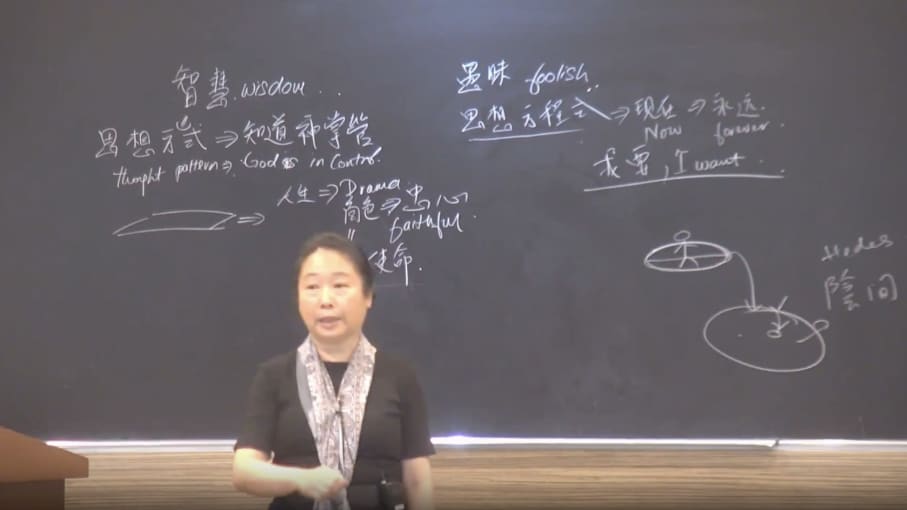 智慧 wisdom...
思想方式⇒知道神掌管
thought pattern⇒ God is in Control.
人生⇒Drama
角色⇒忠心
" faithful.
⇒
使命.
愚昧 foolish..
思想方程式⇒现在⇒永远.
Now forever.
我要, I want.
Hades
阴间